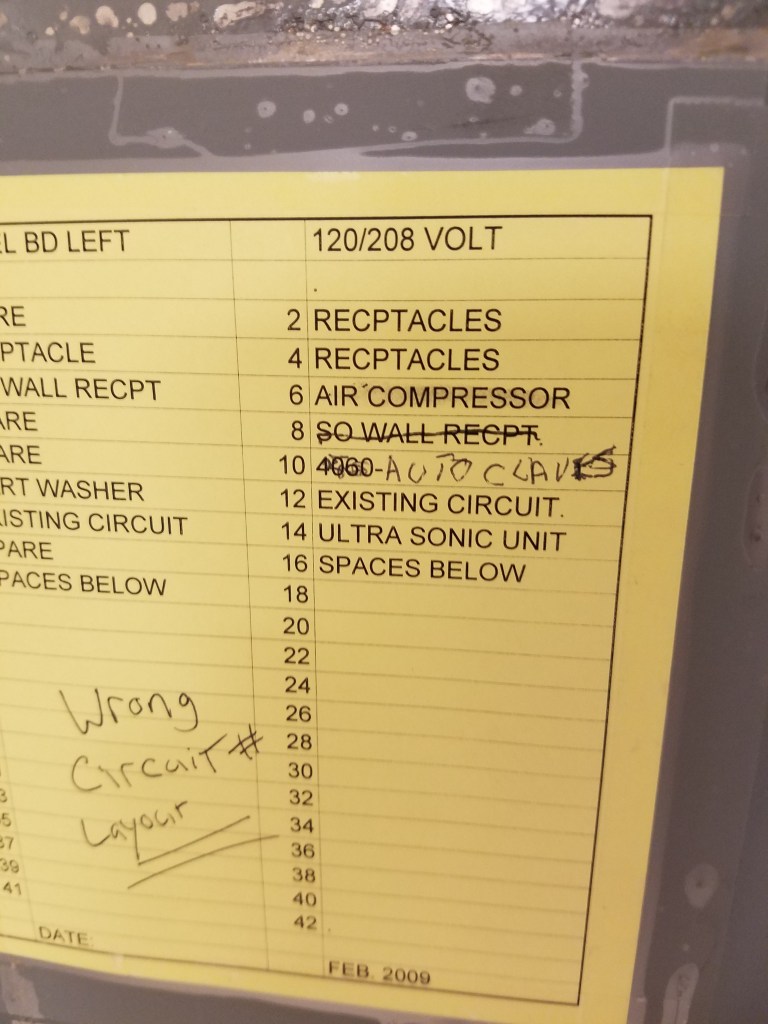 EL BD LEFT 120/208 VOLT
RE 2 RECPTACLES
PTACLE 4 RECPTACLES
WALL RECPT 6 AIR COMPRESSOR
ARE 8 SO WALL RECPT.
ARE 10 4060-AUTO CLAVES
RT WASHER 12 EXISTING CIRCUIT.
ISTING CIRCUIT 14 ULTRA SONIC UNIT
PARE 16 SPACES BELOW
PACES BELOW 18
20
22
24
26
28
30
32
34
36
38
40
42
Wrong
Circuit #
Layout
3
5
37
39
41
DATE: FEB. 2009